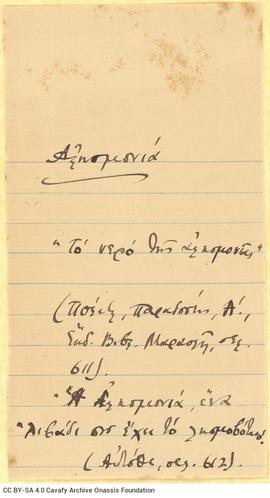 Αλησμονιά
"Το νερό της αλησμονιάς"
(Πολίτ., Παραδόσεις, Α΄.,
Έκδ. Βιβλ. Μαρασλή, σελ.
611).
"Η Αλησμονιά, ένα
"λιβάδι που έχει το λησμοβότανο."
(Αυτόθι, σελ. 612).
CC BY-SA 4.0 Cavafy Archive Onassis Foundation